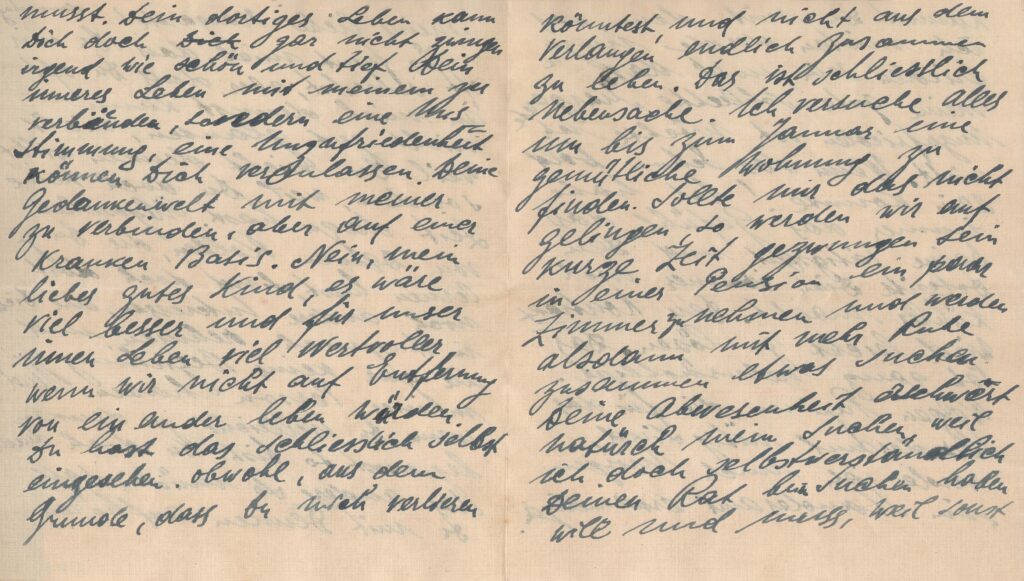 musst. Dein dortiges Leben kann
Dich doch Dich gar nicht zwingen
irgend wie schön und tief Dein
inneres Leben mit meinem zu
verbinden, sondern eine Mis
stimmung, eine Unzufriedenheit
können Dich veranlassen Deine
Gedankenwelt mit meiner
zu verbinden, aber auf einer
kranken Basis. Nein, mein
liebes gutes Kind, es wäre
viel besser und für unser
innen Leben viel Wertvoller
wenn wir nicht auf Entfernung
von ein ander leben würden.
Du hast das schliesslich selbst
eingesehen. obwohl, aus dem
Grunde, dass Du mich verlieren
könntest, und nicht aus dem
Verlangen endlich zusammen
zu leben. Das ist schliesslich
Nebensache. Ich versuche alles
um bis zum Januar eine
gemütliche Wohnung zu
finden. Sollte mir das nicht
gelingen so werden wir auf
kurze Zeit gezwungen sein
in einer Pension ein paar
Zimmer zu nehmen und werden
alsdann mit mehr Ruhe
zusammen etwas suchen
Deine Abwesenheit erschwert
natürch mein Suchen, weil
ich doch selbstverständlich
Deinen Rat beim Suchen haben
will und muss, weil sonst